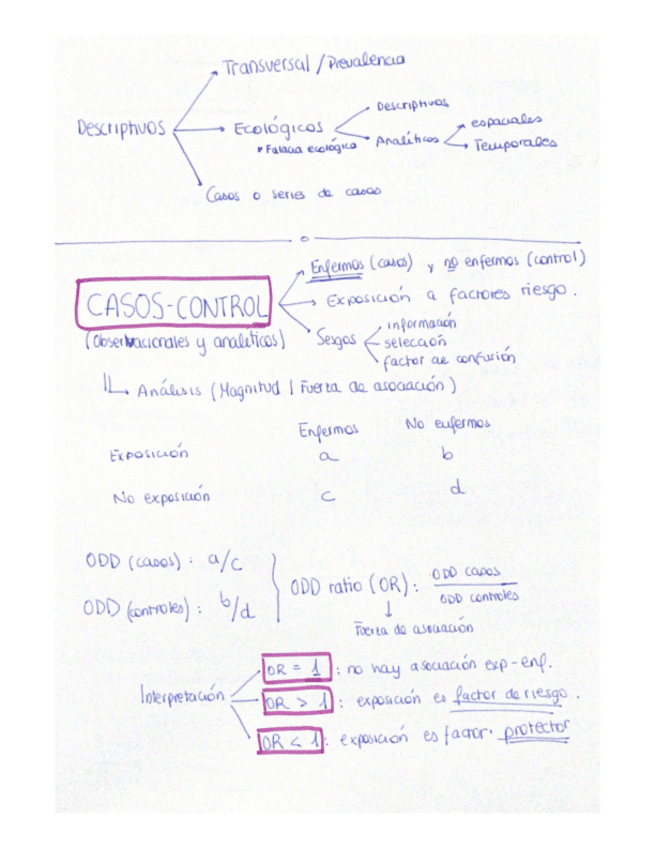 Transversal / Prevalencia
Descriptivos
Ecológicos
* Falacia ecológica
Descriptivos
Analíticos
espaciales
Temporales
Casos o series de casos
CASOS-CONTROL
(Observacionales y analíticos)
Enfermos (casos) y no enfermos (control)
Exposición a factores riesgo.
Sesgos
información
selección
factor de confusión
Análisis (Magnitud / Fuerza de asociación)
Enfermos No enfermos
Exposición a b
No exposición c d
ODD (casos): a/c
ODD (controles): b/d
ODD ratio (OR): ODD casos
ODD controles
Fuerza de asociación
Interpretación
OR = 1 : no hay asociación exp-enf.
OR > 1 : exposición es factor de riesgo.
OR < 1 : exposición es factor. protector